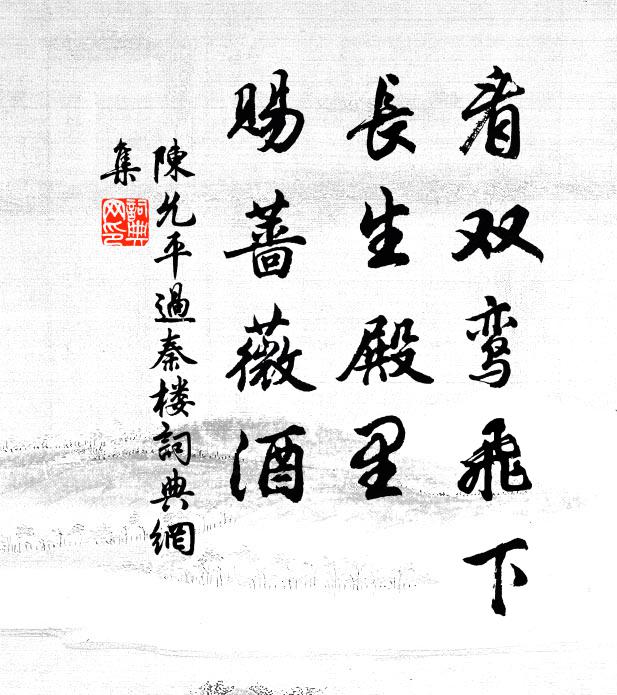 看双鸾飞下
長生殿里
賜薔薇酒
陳允平過秦楼詞典網
集
詞典
网印